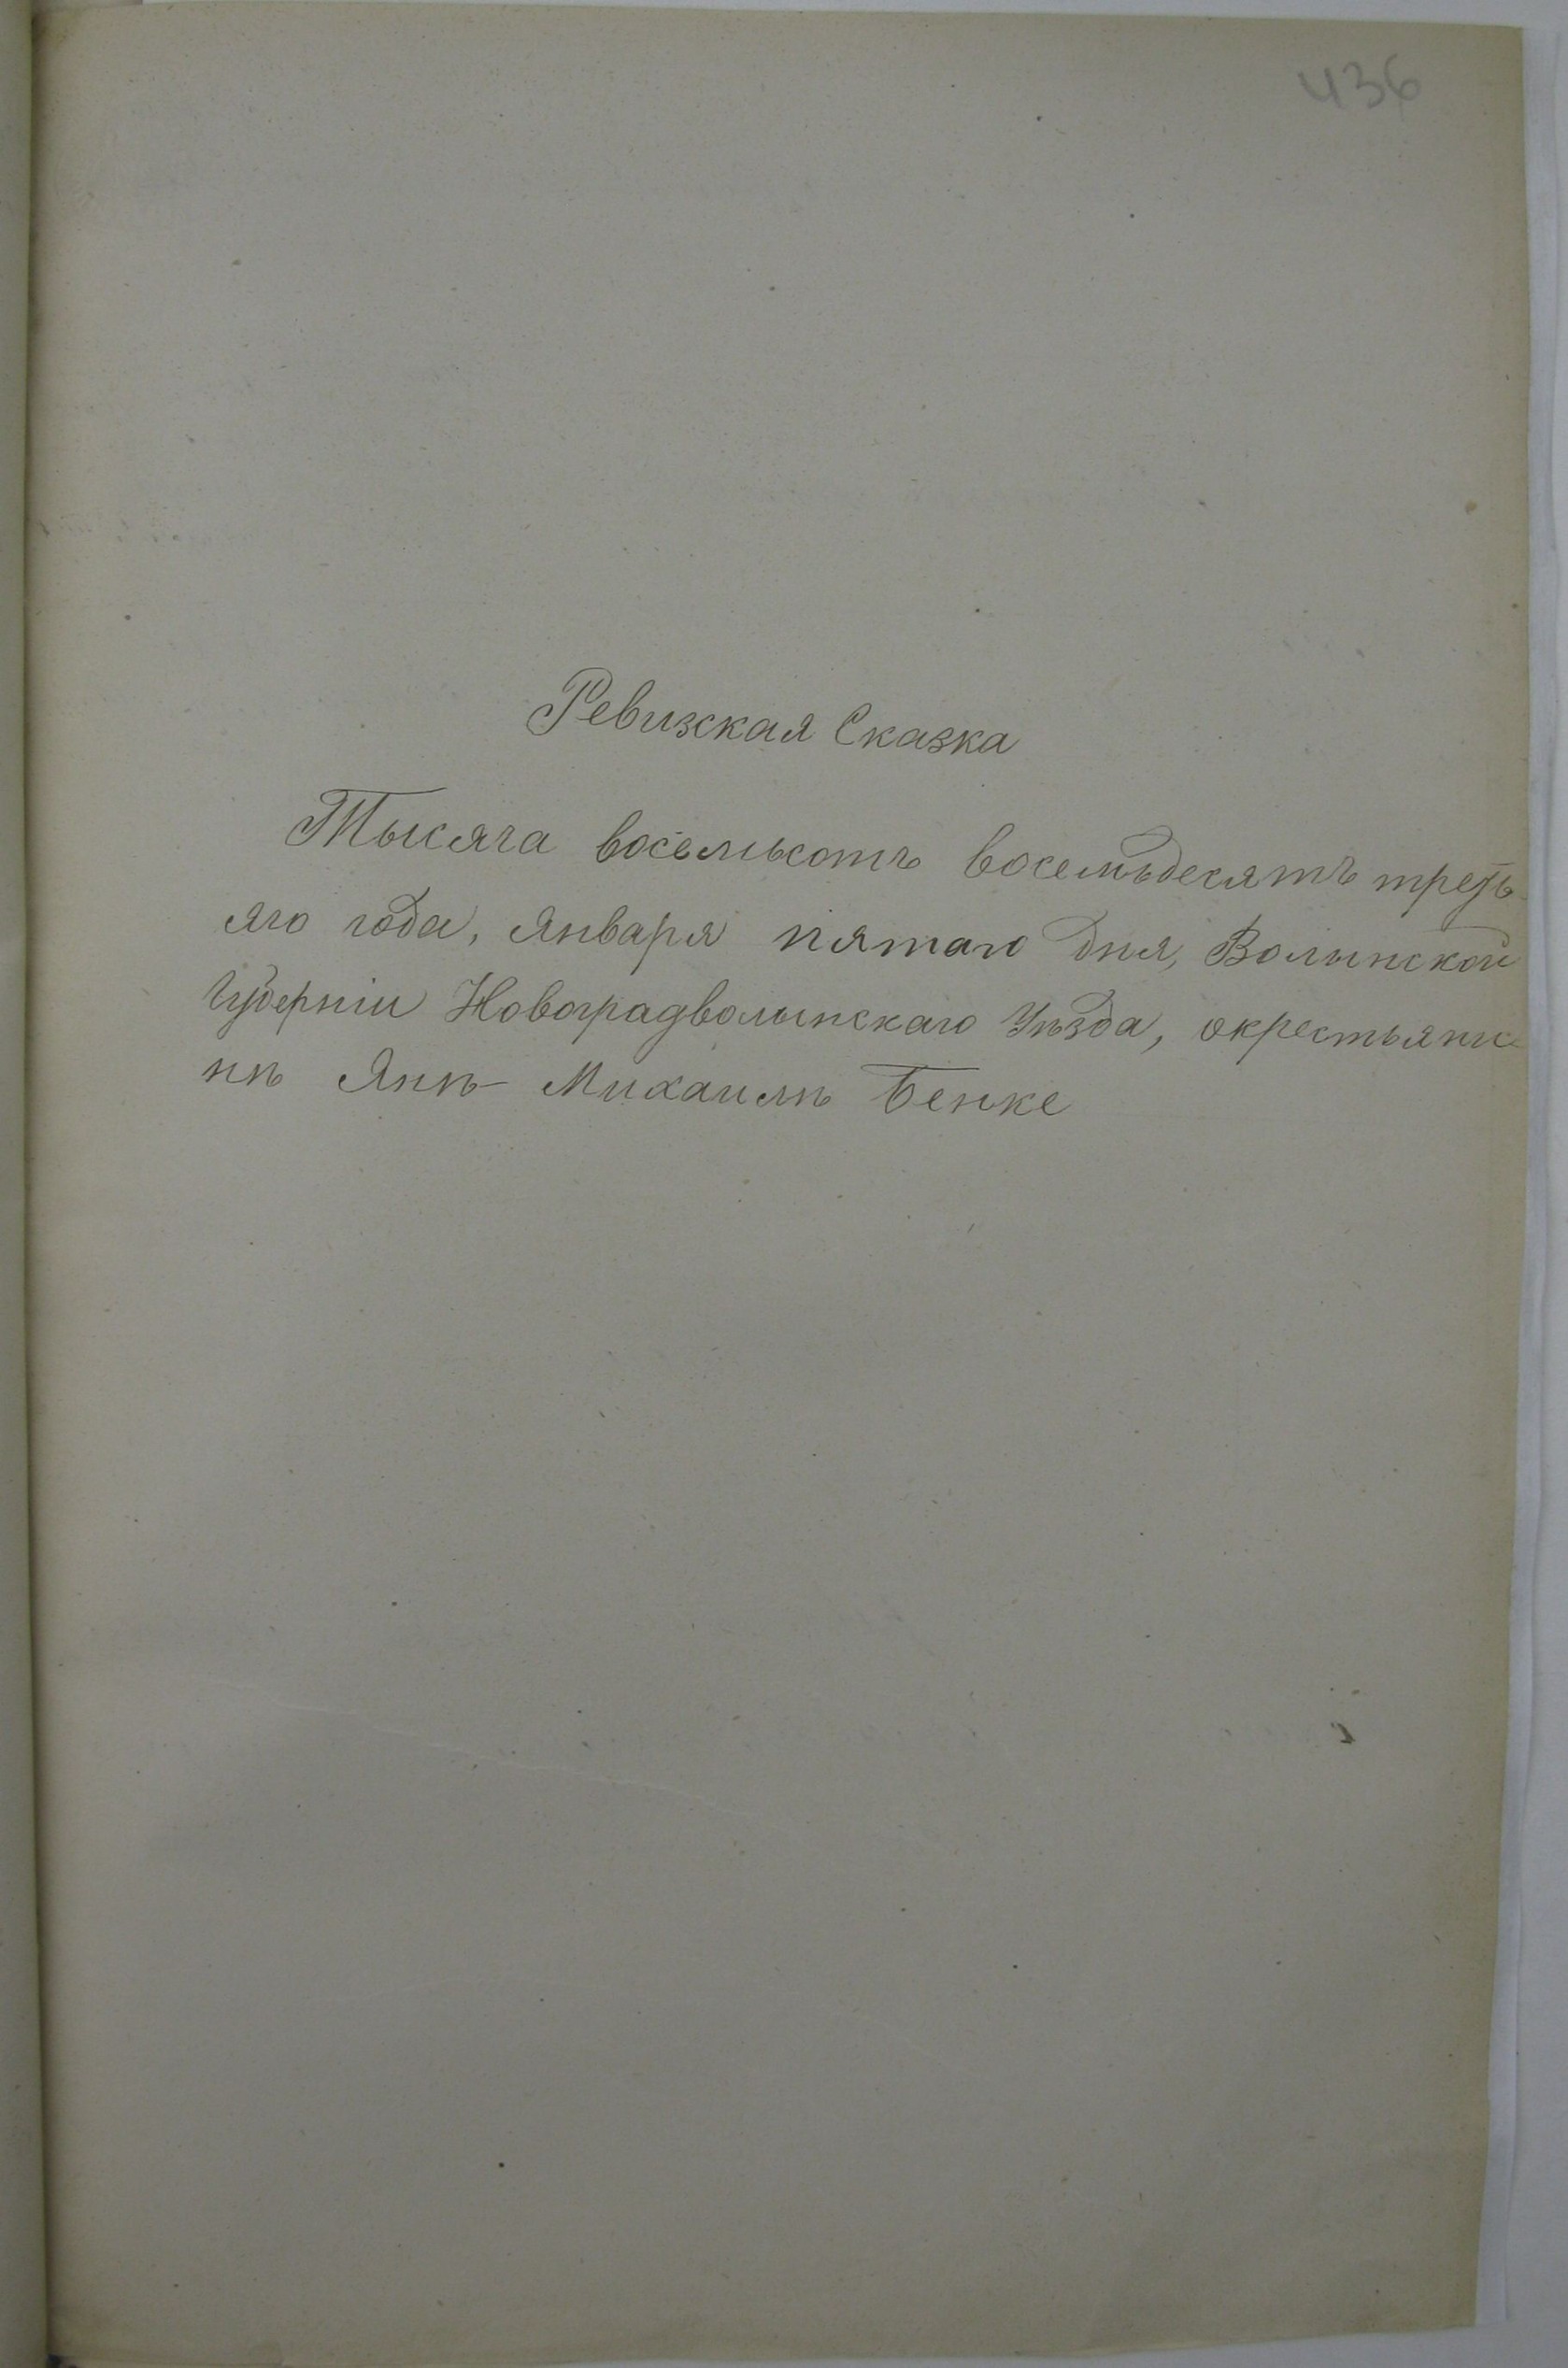 436
Ревизская Сказка
Тысяча восемьсотъ восемьдесятъ треть
яго года, Января пятаго дня, Волынской
Губерніи Новоградволынскаго Уѣзда, окрестьяни
нѣ Янѣ Михаилѣ Бенке